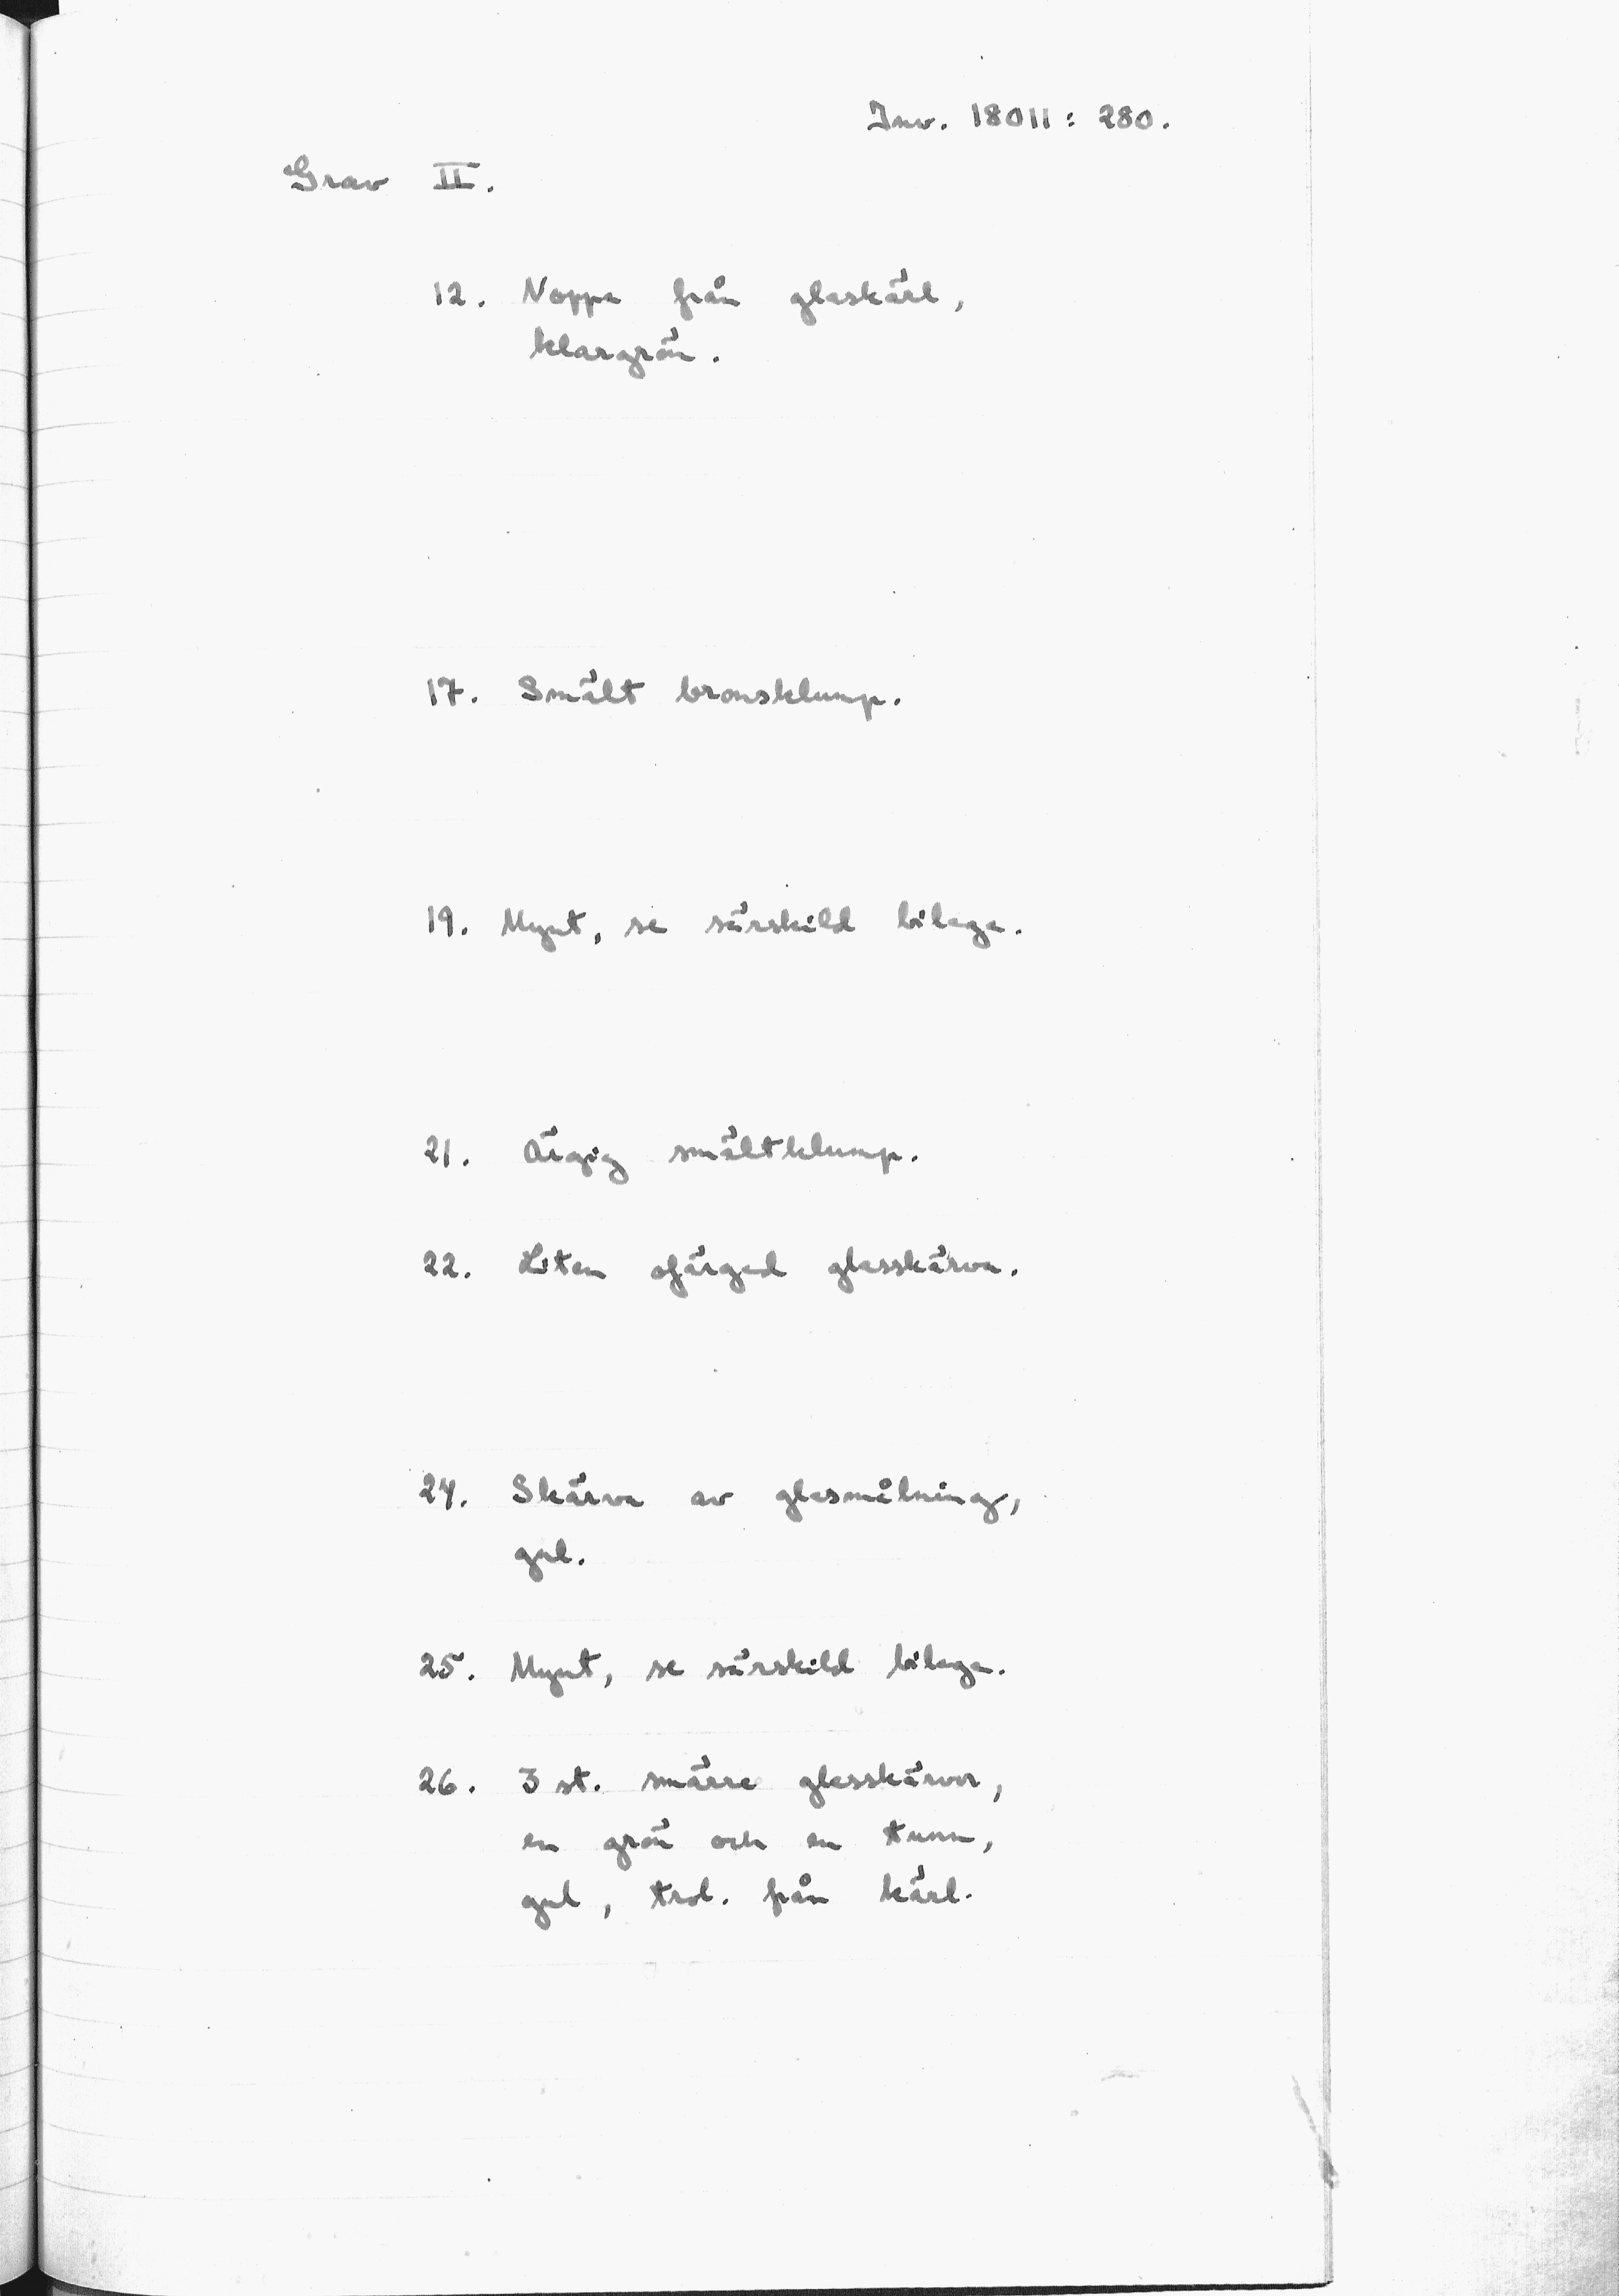 Inv. 18011: 280.
Grav II.
12. Noppa från glaskärl,
klargrön.
17. Smält bronsklump.
19. Mynt, se särskild bilaga.
21. Ärgig smältklump.
22. Liten ofärgad glasskärva.
24. Skärva av glasmålning,
gul.
25. Mynt, se särskild bilaga.
26. 3 st. smärre glasskärvor,
en grön och en tunn,
gul, trol. från kärl.